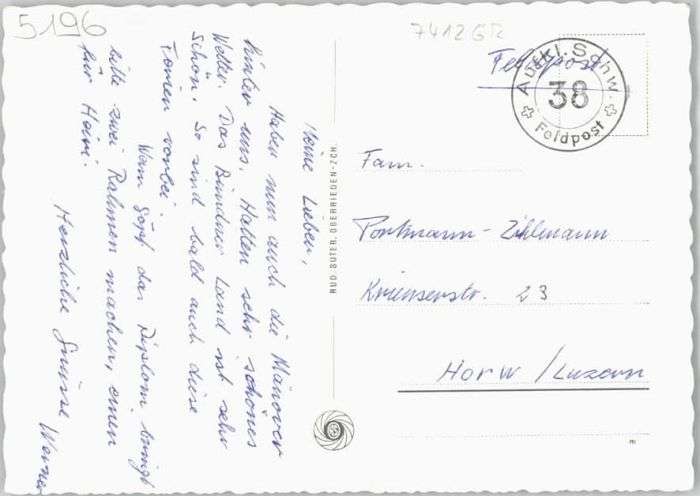 5196
7412 GR
Feldpost
Aufkl. Schw.
38
Feldpost
Meine Lieben,
Haben nun auch die Manöver
hinter uns. Hatten sehr schönes
Wetter. Das Bündner Land ist sehr
schön. So sind bald auch diese
Ferien vorbei.
Wenn Götti das Diplom bringt
bitte zwei Rahmen machen, einen
für Heiri.
Herzliche Grüsse Werner
RUD. SUTER, OBERRIEDEN-ZCH.
Fam.
Portmann-Zihlmann
Krienserstr. 23
Horw / Luzern